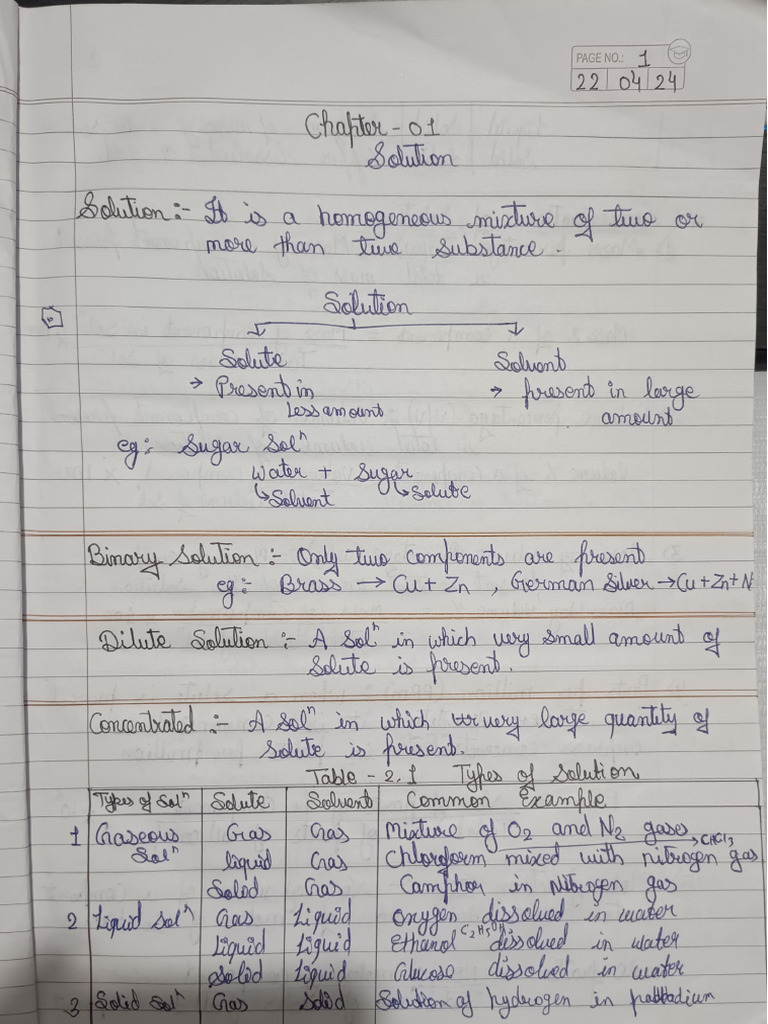 PAGE NO.: 1
22 04 24
Chapter - 01
Solution
Solution :- It is a homogeneous mixture of two or
more than two substance.
Solution
Solute Solvent
→ Present in → present in large
Less amount amount
eg:- Sugar Solⁿ
Water + Sugar
↳ Solvent ↳ Solute
Binary Solution :- Only two components are present
eg:- Brass → Cu + Zn , German Silver → Cu + Zn + N
Dilute Solution :- A Solⁿ in which very small amount of
Solute is present.
Concentrated :- A Solⁿ in which very large quantity of
Solute is present.
Table - 2.1 Types of Solution
Types of Solⁿ Solute Solvent Common Example
1 Gaseous Gas Gas Mixture of O₂ and N₂ gases
Solⁿ liquid Gas Chloroform mixed with nitrogen gas → CHCl₃
Solid Gas Camphor in Nitrogen gas
2 Liquid Solⁿ Gas Liquid Oxygen dissolved in water
Liquid Liquid Ethanol C₂H₅OH dissolved in water
Solid Liquid Glucose dissolved in water
3 Solid Solⁿ Gas Solid Solution of hydrogen in palladium